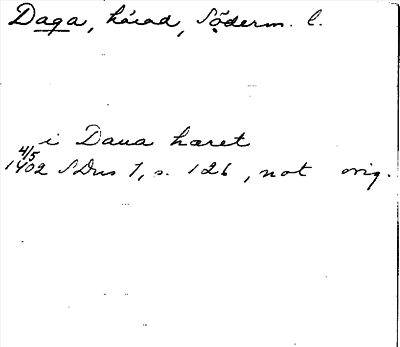 Daga, härad, Söderm. l.
i Daua hæret
4/5
1402 SDns 1, s. 126, not orig.